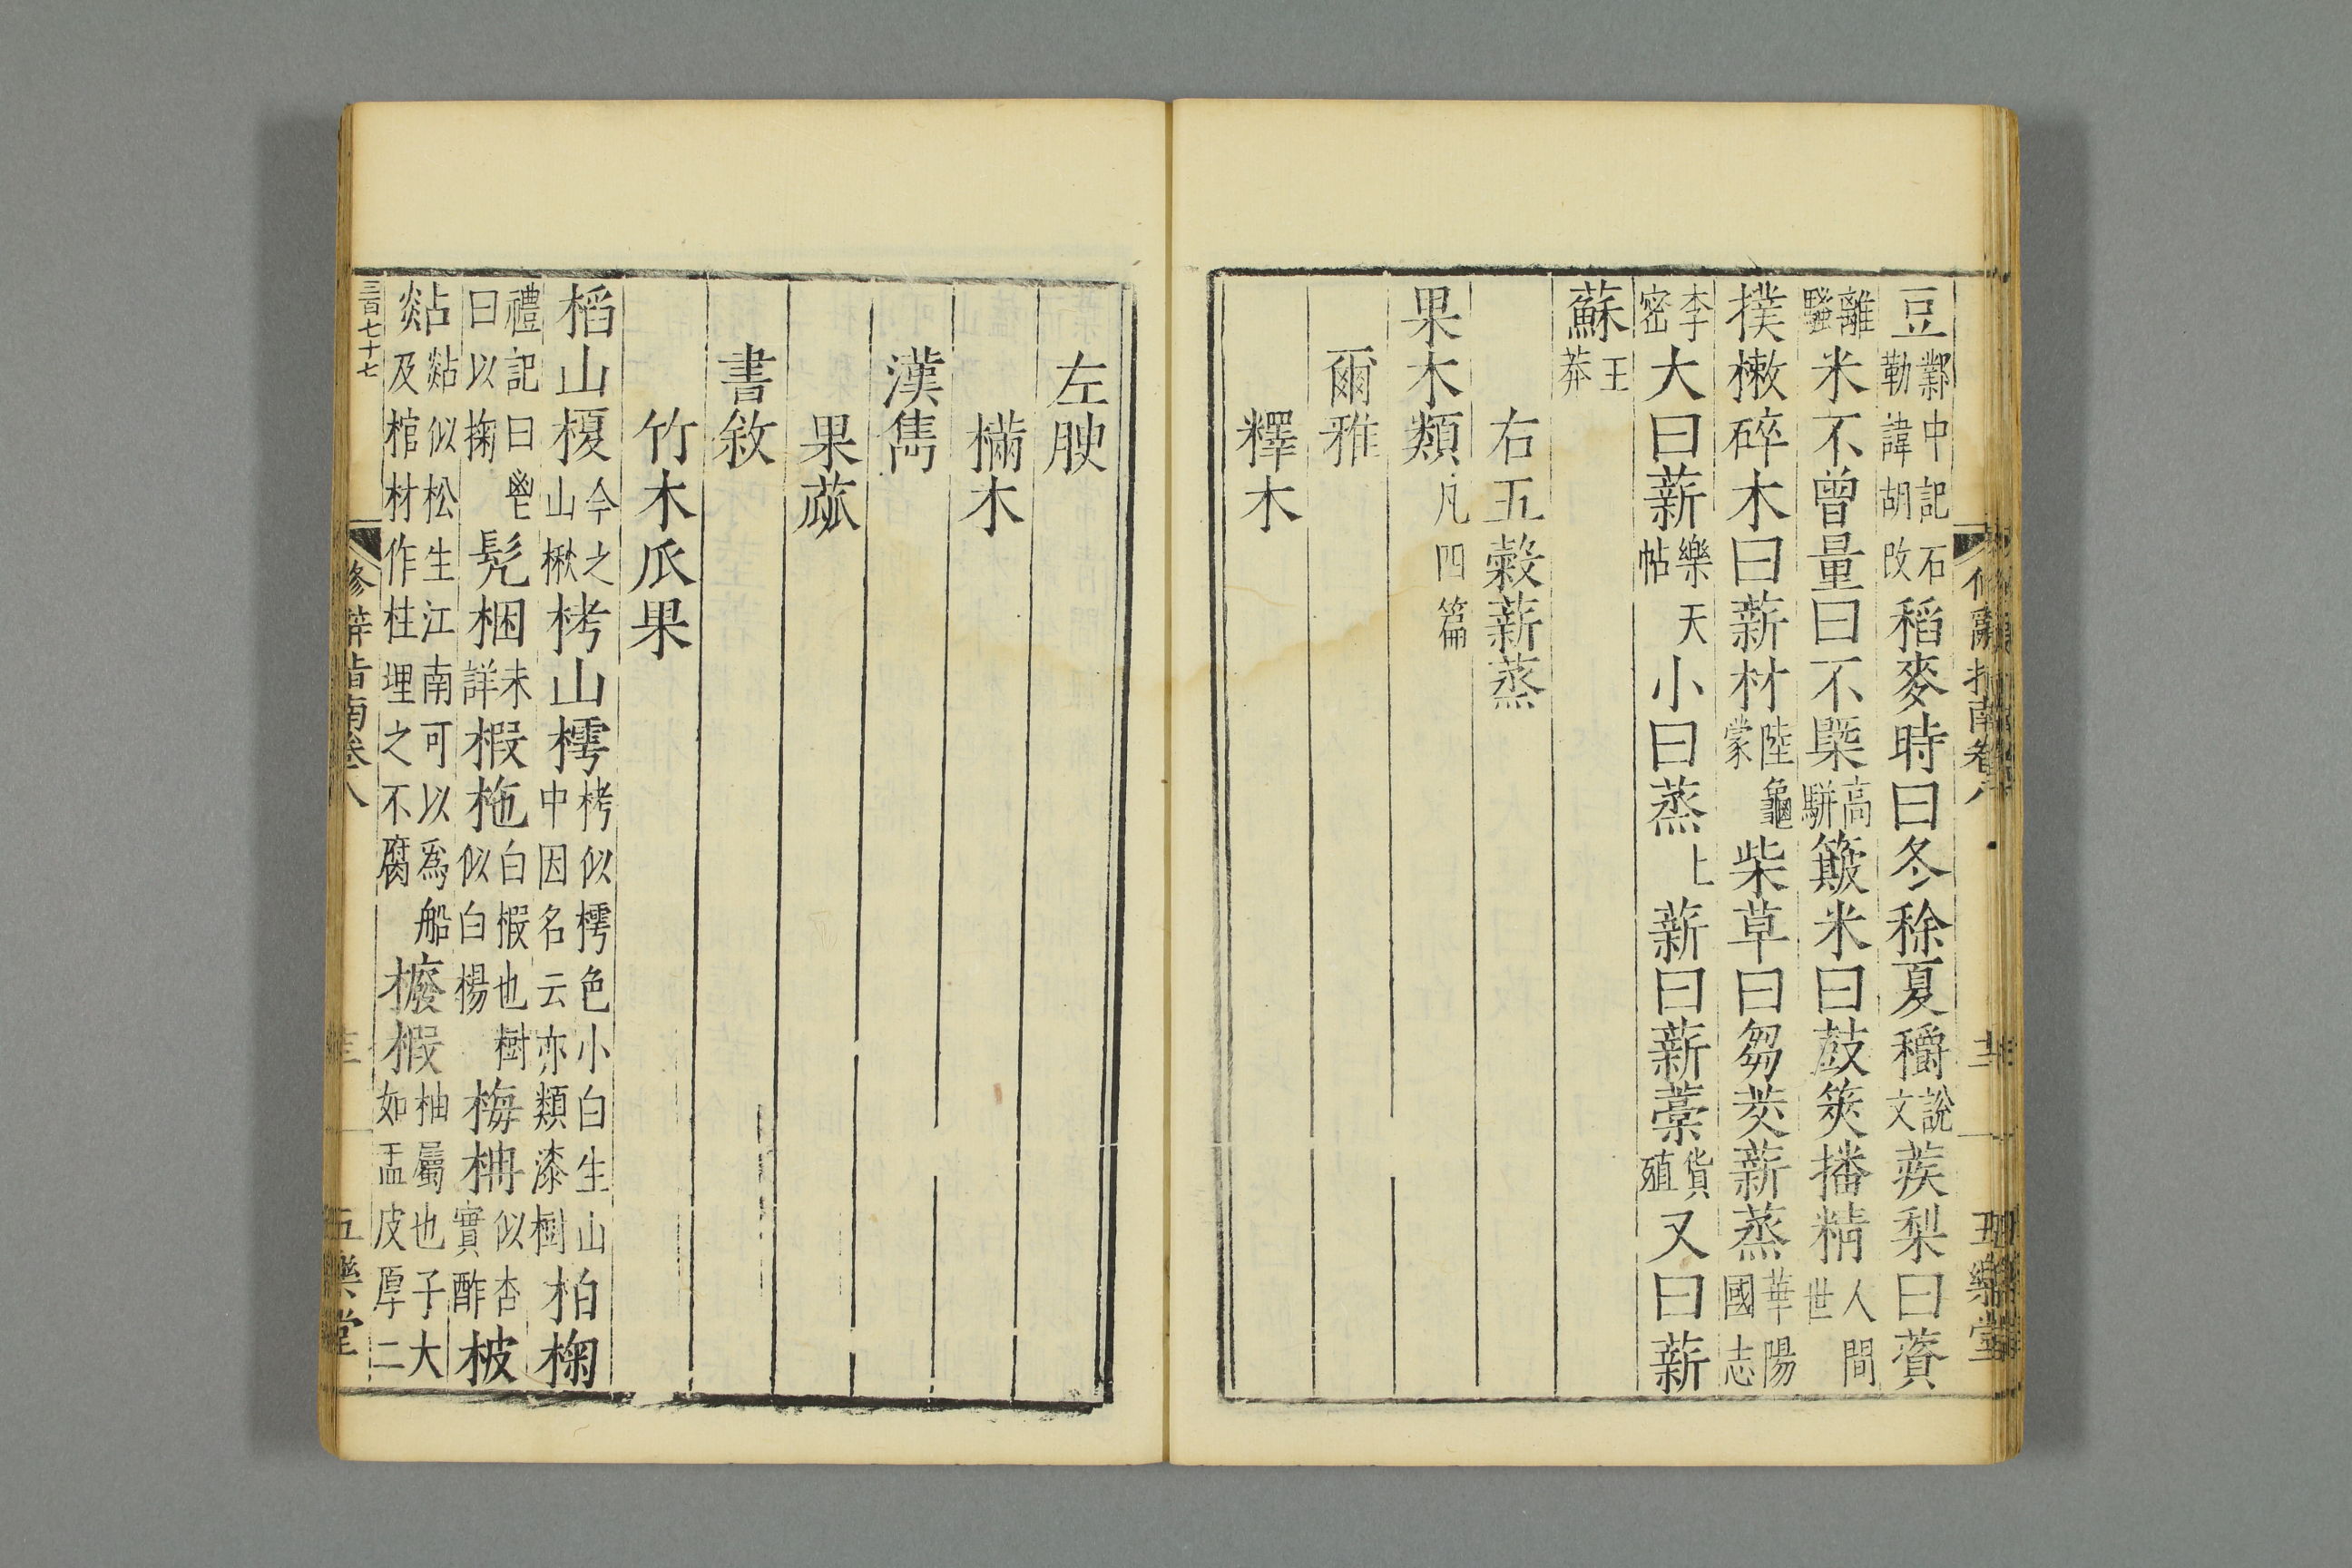 豆鄴中記石勒諱胡改稻麥時曰冬稌夏穱說文蒺梨曰薋
離騷米不曾量曰不槩高駢簸米曰鼓筴播精人間世
撲樕碎木曰薪材陸龜蒙柴草曰芻茭薪蒸華陽國志
李密大曰薪樂天帖小曰蒸上薪曰薪藁貨殖又曰薪
蘇王莽
右五穀薪蒸
果木類凡四篇
爾雅
釋木
左腴
樠木
漢雋
果蓏
書敘
竹木瓜果
稻山榎今之山楸栲山樗栲似樗色小白生山中因名云亦類漆樹柏椈
禮記曰鬯曰以椈髡梱未詳椵柂白椵也樹似白楊梅柟似杏實酢柀
煔煔似松生江南可以爲船及棺材作柱埋之不腐櫠椵柚屬也子大如盂皮厚二
三百七十七
修辭指南卷八
五樂堂